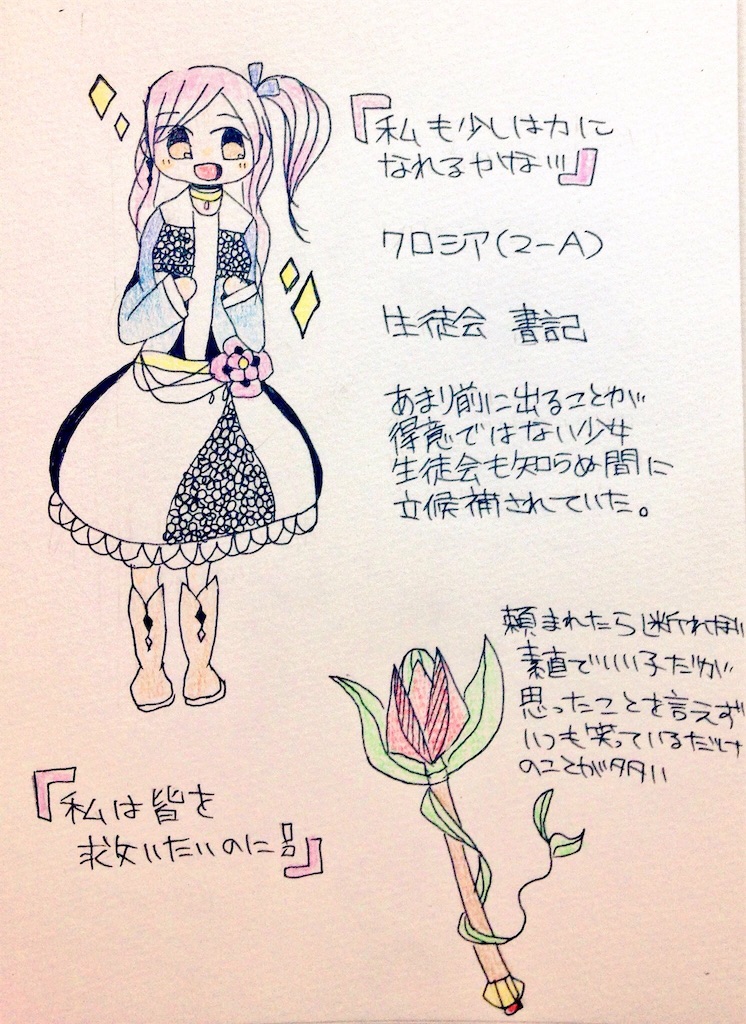 『私も少しは力に
なれるかな…』
クロシア(2-A)
生徒会 書記
あまり前に出ることが
得意ではない少女
生徒会も知らぬ間に
立候補されていた。
頼まれたら断れない
素直でいい子だが
思ったことを言えず
いつも笑っているだけ
のことが多い
『私は皆を
救いたいのに!!』